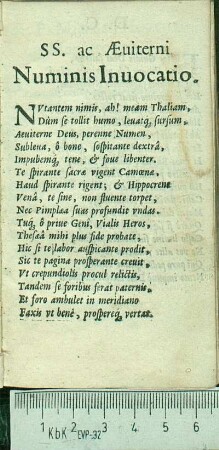 SS. ac Æuiterni
Numinis Inuocatio.
NVtantem nimis, ah! meam Thaliam,
Dùm se tollit humo, leuatq; sursum,
Aeuiterne Deus, perenne Numen,
Subleua, ô bono, sospitante dextrâ,
Impubemq́; tene, & foue libenter.
Te spirante sacra vigent Camœnæ,
Haud spirante rigent; & Hippocrenè
Venâ, te sine, non fluente torpet,
Nec Pimplæa suas profundit vndas.
Tuq́; ô prime Geni, Vialis Heros,
Thesæâ mihi plus fide probate,
Hic si te labor auspicante prodit,
Sic te pagina prosperante creuit,
Vt crepundiolis procul relictis,
Tandem se foribus ferat paternis,
Et foro ambulet in meridiano
Faxis vt benè, prospereq́; vertat.
1 2 3 4 5 6
KbK EVP-32